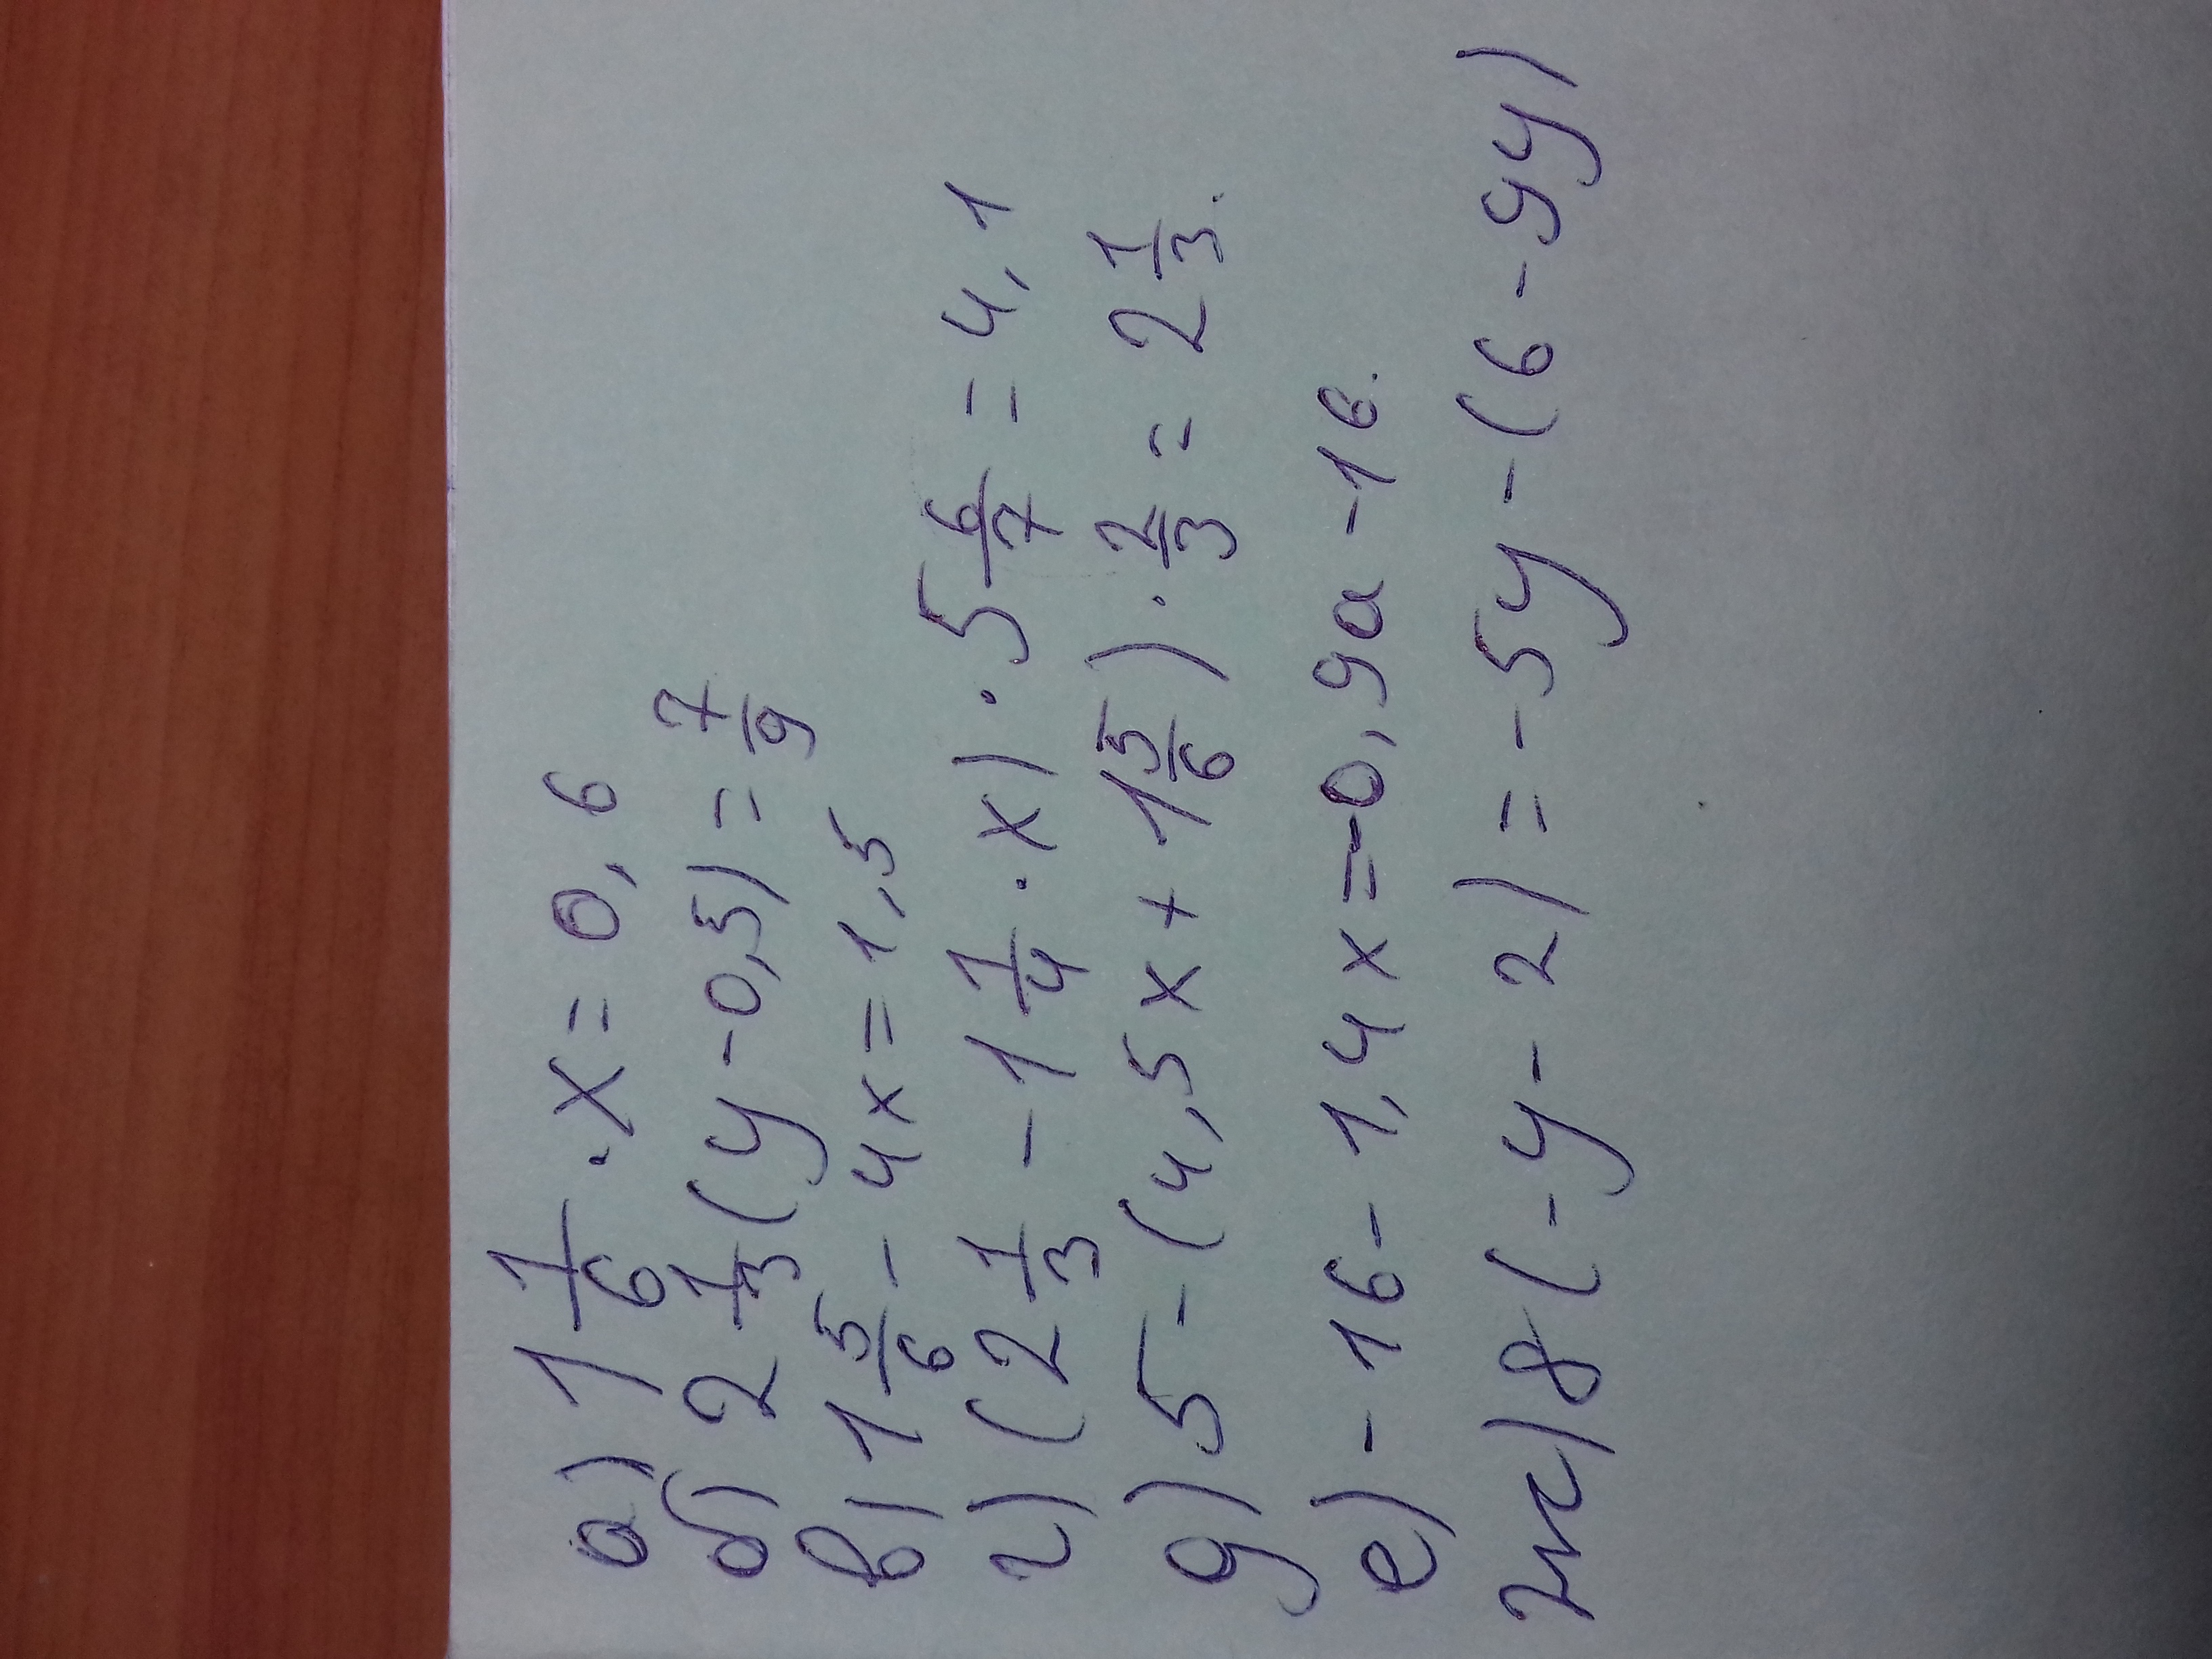 а) 1 1/6 · x = 0,6
б) 2 1/3 (y - 0,5) = 7/9
в) 1 5/6 - 4x = 1,5
г) (2 1/3 - 1 1/4 · x) · 5 6/7 = 4,1
д) 5 - (4,5x + 1 5/6) · 2/3 = 2 1/3.
е) - 16 - 1,4x = -0,9а - 16.
ж) 8(-y - 2) = -5y - (6 - 9y)